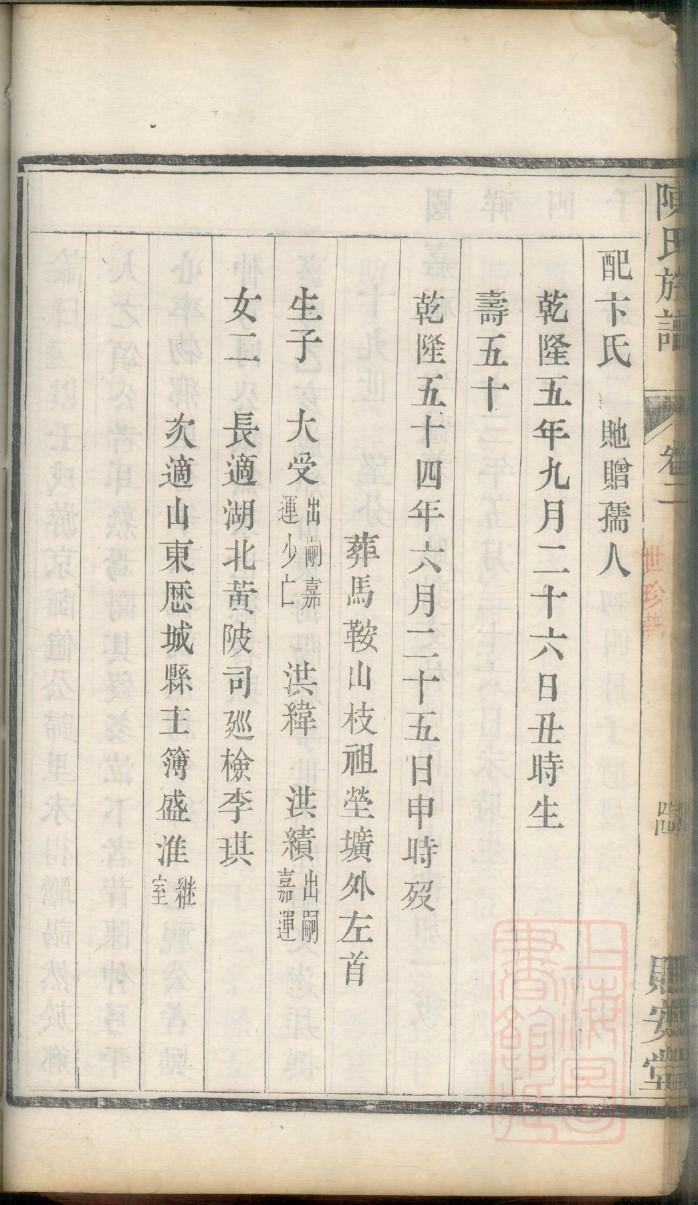 陳氏族譜 卷二 世珍 四 賜安堂
配卞氏 貤贈孺人
乾隆五年九月二十六日丑時生
壽五十
乾隆五十四年六月二十五日申時歿
葬馬鞍山枝祖塋壙外左首
生子 大受出嗣嘉運少亡 洪緯 洪績出嗣嘉運
女二 長適湖北黃陂司廵檢李琪
次適山東歷城縣主簿盛淮繼室
上海圖書館藏